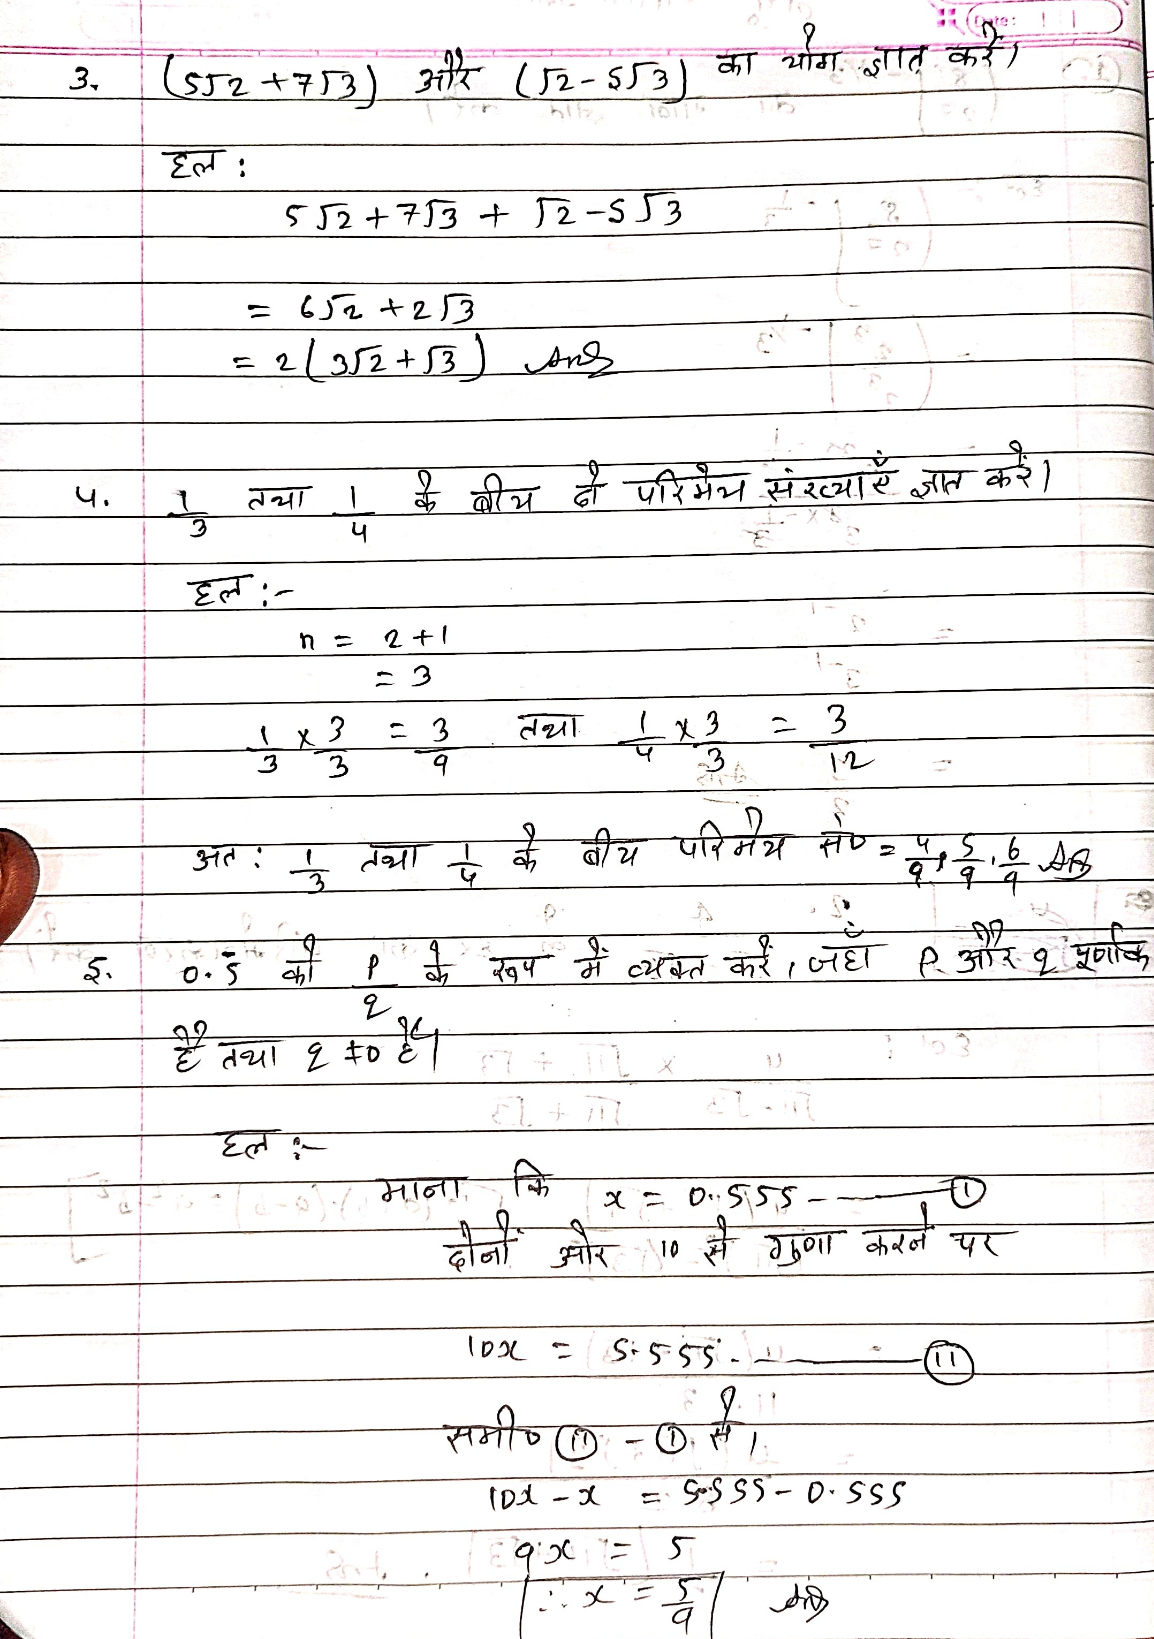 Date:
3. (5√2 + 7√3) और (√2 - 5√3) का योग ज्ञात करें।
हल :
5√2 + 7√3 + √2 - 5√3
= 6√2 + 2√3
= 2(3√2 + √3) Ans
4. 1/3 तथा 1/4 के बीच दो परिमेय संख्याएँ ज्ञात करें।
हल :-
n = 2 + 1
= 3
1/3 × 3/3 = 3/9 तथा 1/4 × 3/3 = 3/12
अत : 1/3 तथा 1/4 के बीच परिमेय सं० = 4/9, 5/9, 6/9 Ans
5. 0.5̄ को P/q के रूप में व्यक्त करें, जहाँ P और q पूर्णांक
हैं तथा q ≠ 0 है।
हल :-
माना कि x = 0.555 - ——— ①
दोनों ओर 10 से गुणा करने पर
10x = 5.555 - ——— ⑪
समी० ⑪ - ① से,
10x - x = 5.555 - 0.555
9x = 5
∴ x = 5/9 Ans